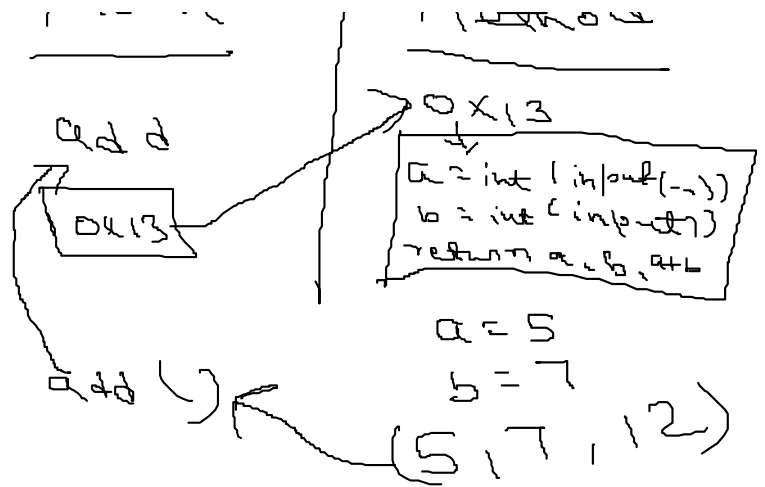 add
0x13
add ()
0x13
a = int (input(--))
b = int (input())
return a, b, a+b
a = 5
b = 7
(5, 7, 12)